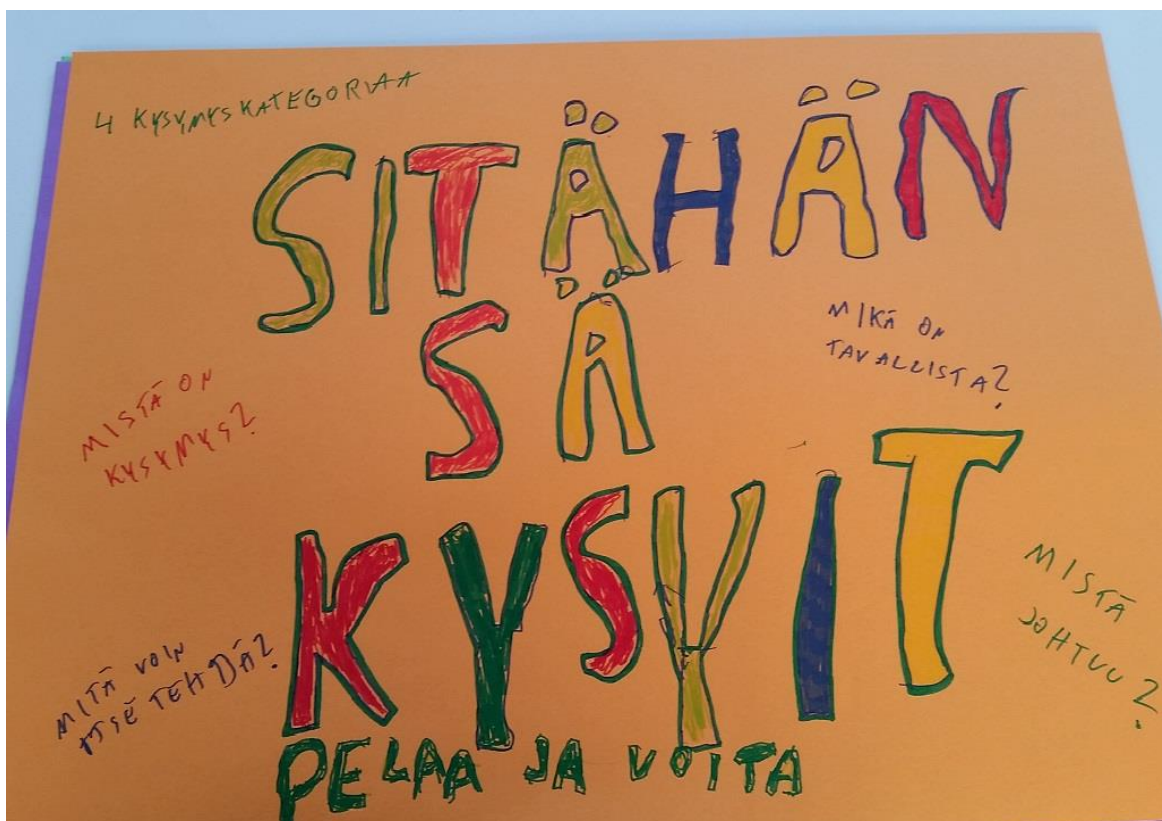 4 KYSYMYSKATEGORIAA
SITÄHÄN
SÄ
KYSYIT
MIKÄ ON
TAVALLISTA?
MISTÄ ON
KYSYMYS?
MISTÄ
JOHTUU?
MITÄ VOIN
ITSE TEHDÄ?
PELAA JA VOITA